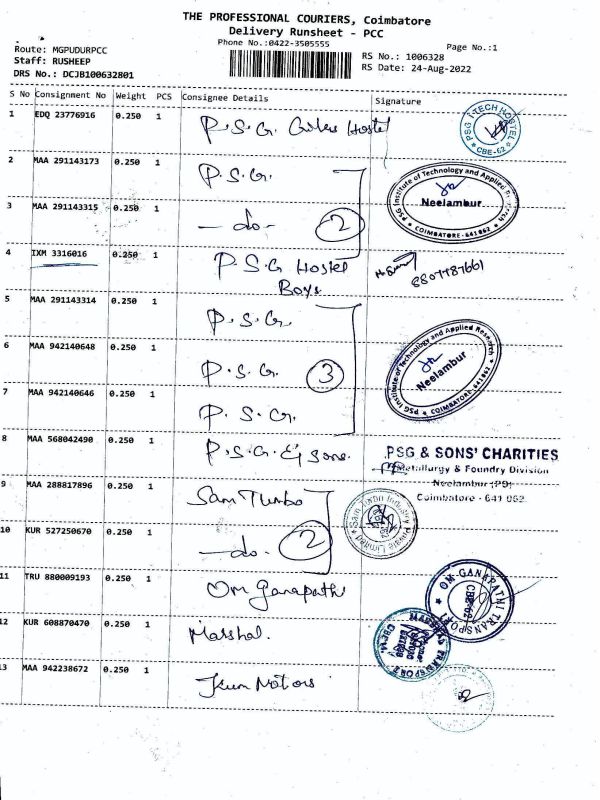 THE PROFESSIONAL COURIERS, Coimbatore
Delivery Runsheet - PCC
Phone No.:0422-3505555
Page No.:1
Route: MGPUDURPCC
Staff: RUSHEEP
DRS No.: DCJB100632801
RS No.: 1006328
RS Date: 24-Aug-2022
S No Consignment No Weight PCS Consignee Details Signature
1 EDQ 23776916 0.250 1 P.S.G. Girls Hostel
PSG I-TECH HOSTEL
CBE-62
2 MAA 291143173 0.250 1 P.S.G.
PSG Institute of Technology and Applied Research
Neelambur
COIMBATORE-641 062
3 MAA 291143315 0.250 1 -do- 2
4 IXM 3316016 0.250 1 P.S.G Hostel
Boys
8807787661
5 MAA 291143314 0.250 1 P.S.G.
6 MAA 942140648 0.250 1 P.S.G. 3
PSG Institute of Technology and Applied Research
Neelambur
COIMBATORE-641 062
7 MAA 942140646 0.250 1 P.S.G.
8 MAA 568042490 0.250 1 P.S.G. & Sons.
PSG & SONS' CHARITIES
Metallurgy & Foundry Division
Neelambur (PO)
Coimbatore - 641 062
9 MAA 288817896 0.250 1 Sam Turbo
Sam Turbo Industry Private Limited
10 KUR 527250670 0.250 1 -do- 2
11 TRU 880009193 0.250 1 Om Ganapathi
OM GANAPATHI TRANSPORT
CBE-62
12 KUR 608870470 0.250 1 Marshal.
MARSHAL TRANSPORT
13 MAA 942238672 0.250 1 Motors